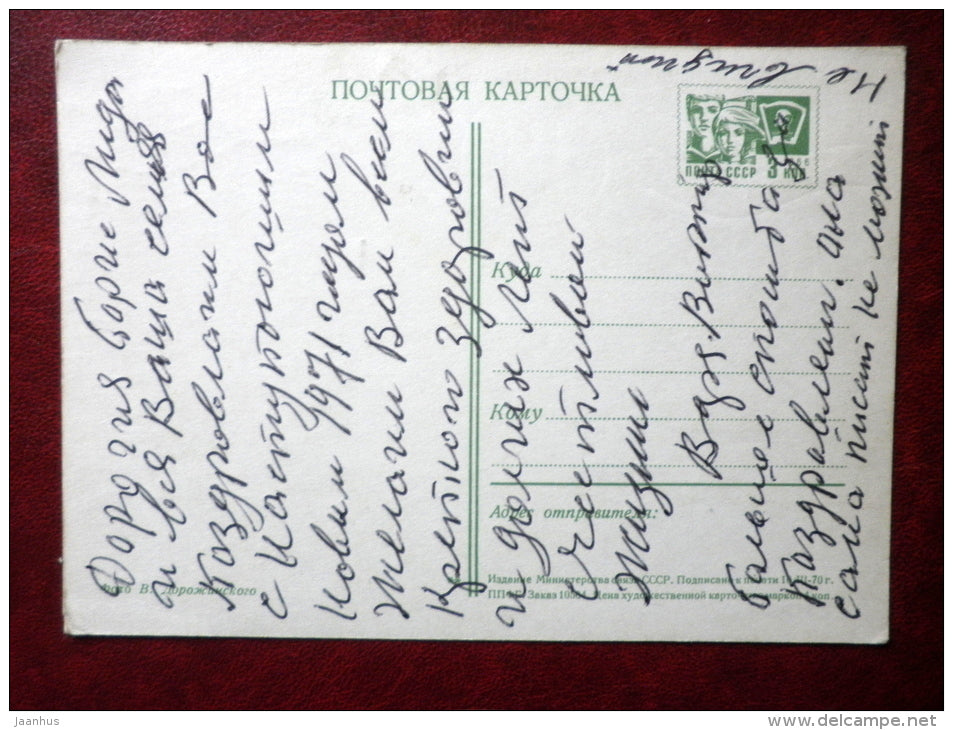 ПОЧТОВАЯ КАРТОЧКА
ПОЧТА СССР
1966
3 КОП
Куда
Кому
Адрес отправителя:
Фото В. Дорожинского
Издание Министерства связи СССР. Подписано к печати 10-III-70 г.
ППФГ. Заказ 10564. Цена художественной карточки с маркой 4 коп.
Дорогия Борис Лида
и вся Ваша семья
Поздровлаем Вас
с Наступоющим
Новым 1971 годом
Желаем Вам всем
Крепкого здоровия
и долгих лет
Счестливой
Жизни
Вдзв. Виктор
Большое спосиба за
Поздравление. она
сама писать не может
не видит
Jaanhus
www.delcampe.net